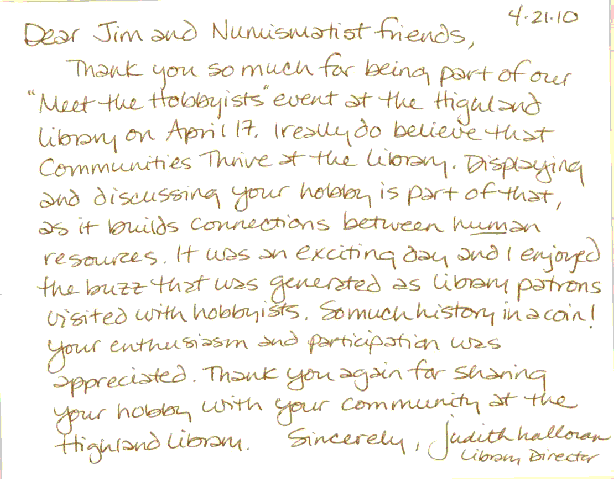 4.21.10
Dear Jim and Numismatist friends,
Thank you so much for being part of our
"Meet the Hobbyists" event at the Highland
Library on April 17. I really do believe that
Communities Thrive at the library. Displaying
and discussing your hobby is part of that,
as it builds connections between human
resources. It was an exciting day and I enjoyed
the buzz that was generated as library patrons
visited with hobbyists. So much history in a coin!
Your enthusiasm and participation was
appreciated. Thank you again for sharing
your hobby with your community at the
Highland Library. Sincerely, Judith Halloran
Library Director